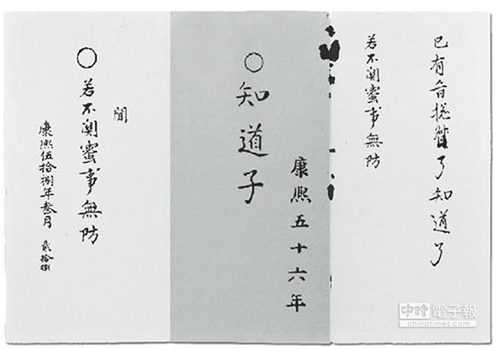 已有旨提督了知道了
若不關蜜事無防
康熙五十六年
〇知道子
聞
〇若不關蜜事無防
康熙伍拾捌年叁月 貳拾捌
中時電子報
chinatimes.com